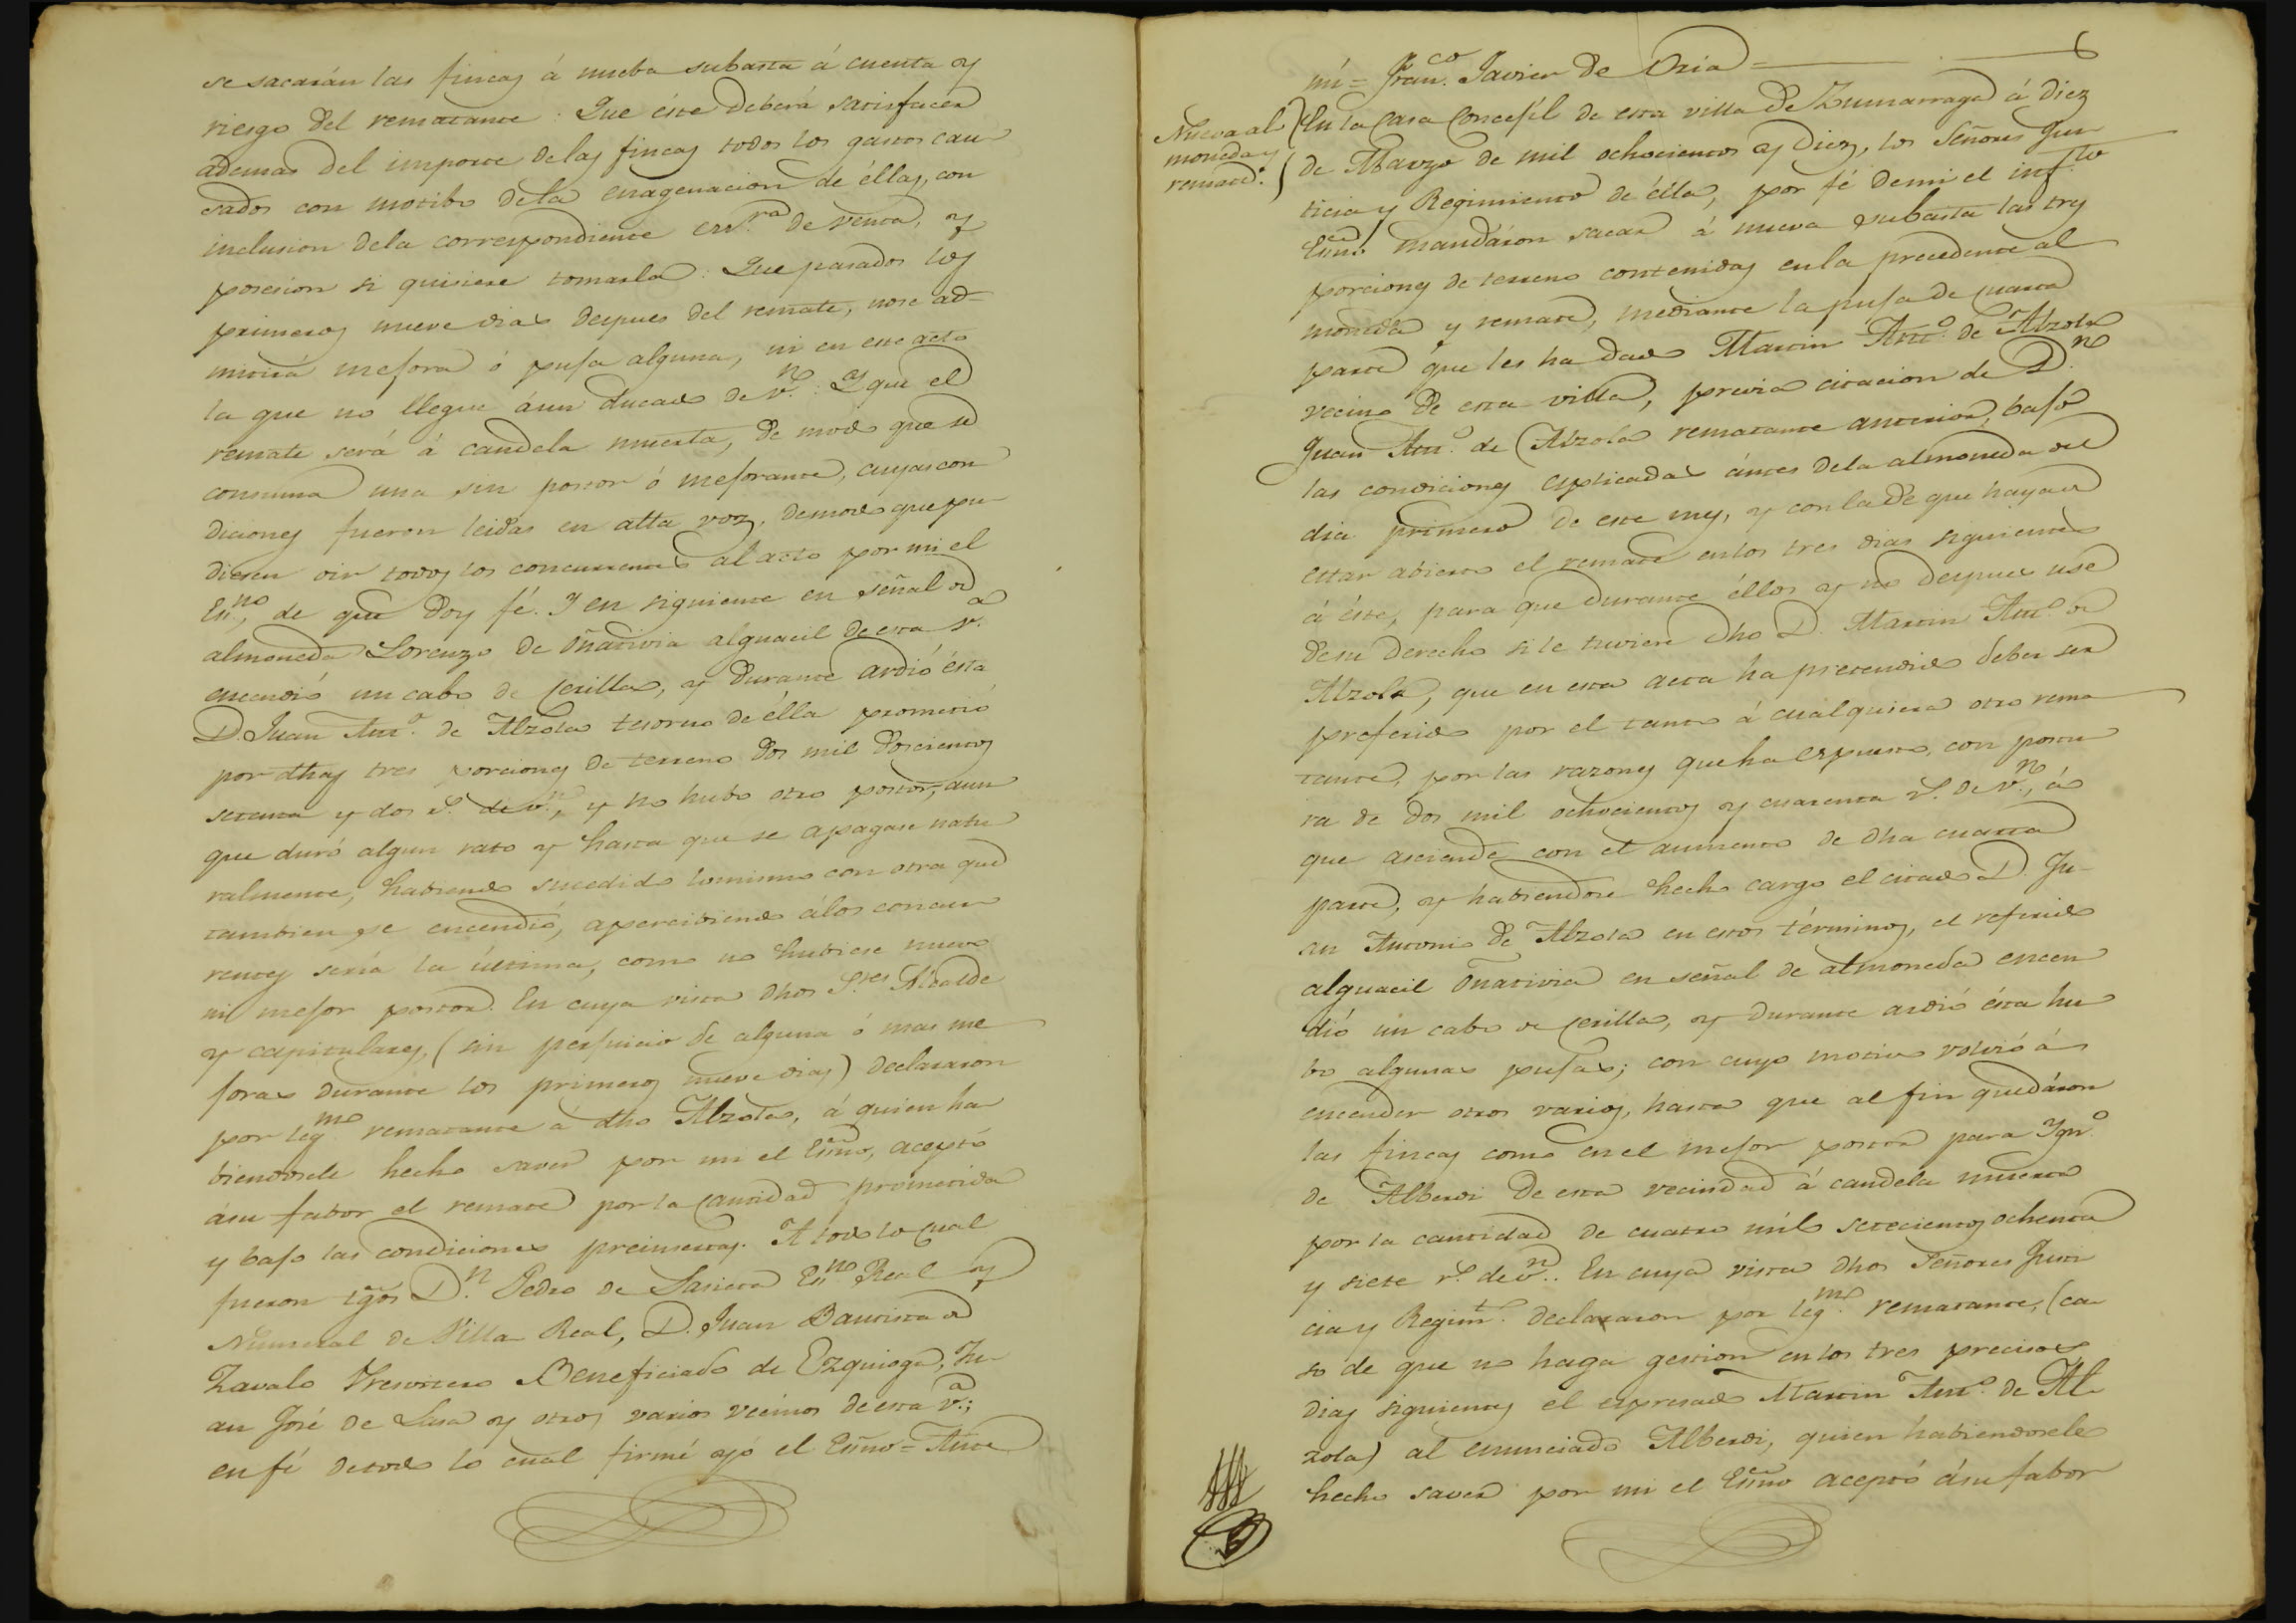 se sacarán las fincas á nueba subasta á cuenta y
riesgo del rematante: Que éste deberá satisfacer
ademas del importe delas fincas todos los gastos cau
sados con motibo dela enagenacion de éllas, con
inclusion dela correspondiente essra. de venta, y
posesion si quisiere tomarla: Que pasados los
primeros nueve dias despues del remate, nose ad-
mitirá mejora ó puja alguna, ni en este acto
la que no llegue áun ducado de v.no: Y que el
remate será á candela muerta, de modo que se
consuma una sin postor ó mejorante, cuyas con
diciones fueron leidas en alta voz, demodo que pu
diesen oir todos los concurrentes al acto por mi el
Esno., de que doy fé. Y en siguiente en señal de
almoneda Lorenzo de Oñativia alguacil de esta v.a
encendió un cabo de cerilla, y durante ardió ésta
D. Juan Anto. de Alzola tesorero de élla prometió
por dhas tres porciones de terreno dos mil doscientos
setenta y dos rs. de vn., y no hubo otro postor, aun
que duró algun rato y hasta que se apagase natu
ralmente, habiendo sucedido lomismo con otra que
tambien se encendió, apercibiendo álos concur
rentes sería la última, como no hubiese nuevo
ni mejor postor. En cuya vista dhos S.res Alcalde
y capitulares, (sin perjuicio de alguna ó mas me
joras durante los primeros nueve dias) declararon
por legmo. rematante á dho Alzola, á quien ha
biendosele hecho saver por mi el Esno, aceptó
ásu fabor el remate por la cantidad prometida
y bajo las condiciones preinsertas. A todo lo cual
fueron tgos D.n Pedro de Lasieta Esno Real y
Numeral de Villa Real, D. Juan Bautista de
Zavalo Presvitero Beneficiado de Ezquioga, Ju-
an José de Lasa y otros varios vecinos de esta v.a;
en fé detodo lo cual firmé yó el Esno = Ante
mí = Franco. Javier de Oria =
6
Nueva al
moneda y
remate.
En la Casa Concejil de esta villa de Zumarraga á diez
de Marzo de mil ochocientos y diez, los Señores Jus
ticia y Regimiento de élla, por fé demi el infto
Esno. mandáron sacar á nueva subasta las tres
porciones de terreno contenidas enla precedente al
moneda y remate, mediante la puja de cuarta
parte que les ha dado Martin Anto. de Alzola
vecino de esta villa, previa citacion de D.n
Juan Anto. de Alzola rematante anterior, bajo
las condiciones esplicadas ántes dela almoneda del
dia primero de este mes, y con la de que haya de
estar abierto el remate en los tres dias siguientes
á éste, para que durante éllos y no despues use
desu derecho si le tuviere dho D. Martin Anto. de
Alzola, que en esta acta ha pretendido deber ser
preferido por el tanto á cualquiera otro rema
tante, por las razones que ha espuesto, con postu
ra de dos mil ochocientos y cuarenta rs. de vn., á
que asciende con el aumento de dha cuarta
parte, y habiendose hecho cargo el citado D. Ju-
an Antonio de Alzola en estos términos, el referido
alguacil Oñativia en señal de almoneda encen
dió un cabo de cerilla, y durante ardió ésta hu
bo algunas pujas; con cuyo motivo volvió á
encender otros varios, hasta que al fin quedáron
las fincas como en el mejor postor para Igno.
de Alberdi de esta vecindad á candela muerta
por la cantidad de cuatro mil setecientos ochenta
y siete rs. de vn. En cuya vista dhos Señores Justi
cia y Regimto. declararon por legmo. rematante, (ca
so de que no haga gestion en los tres precisos
dias siguientes el espresado Martin Anto. de Al-
zola) al enunciado Alberdi, quien habiendosele
hecho saver por mi el Esno aceptó ásu fabor